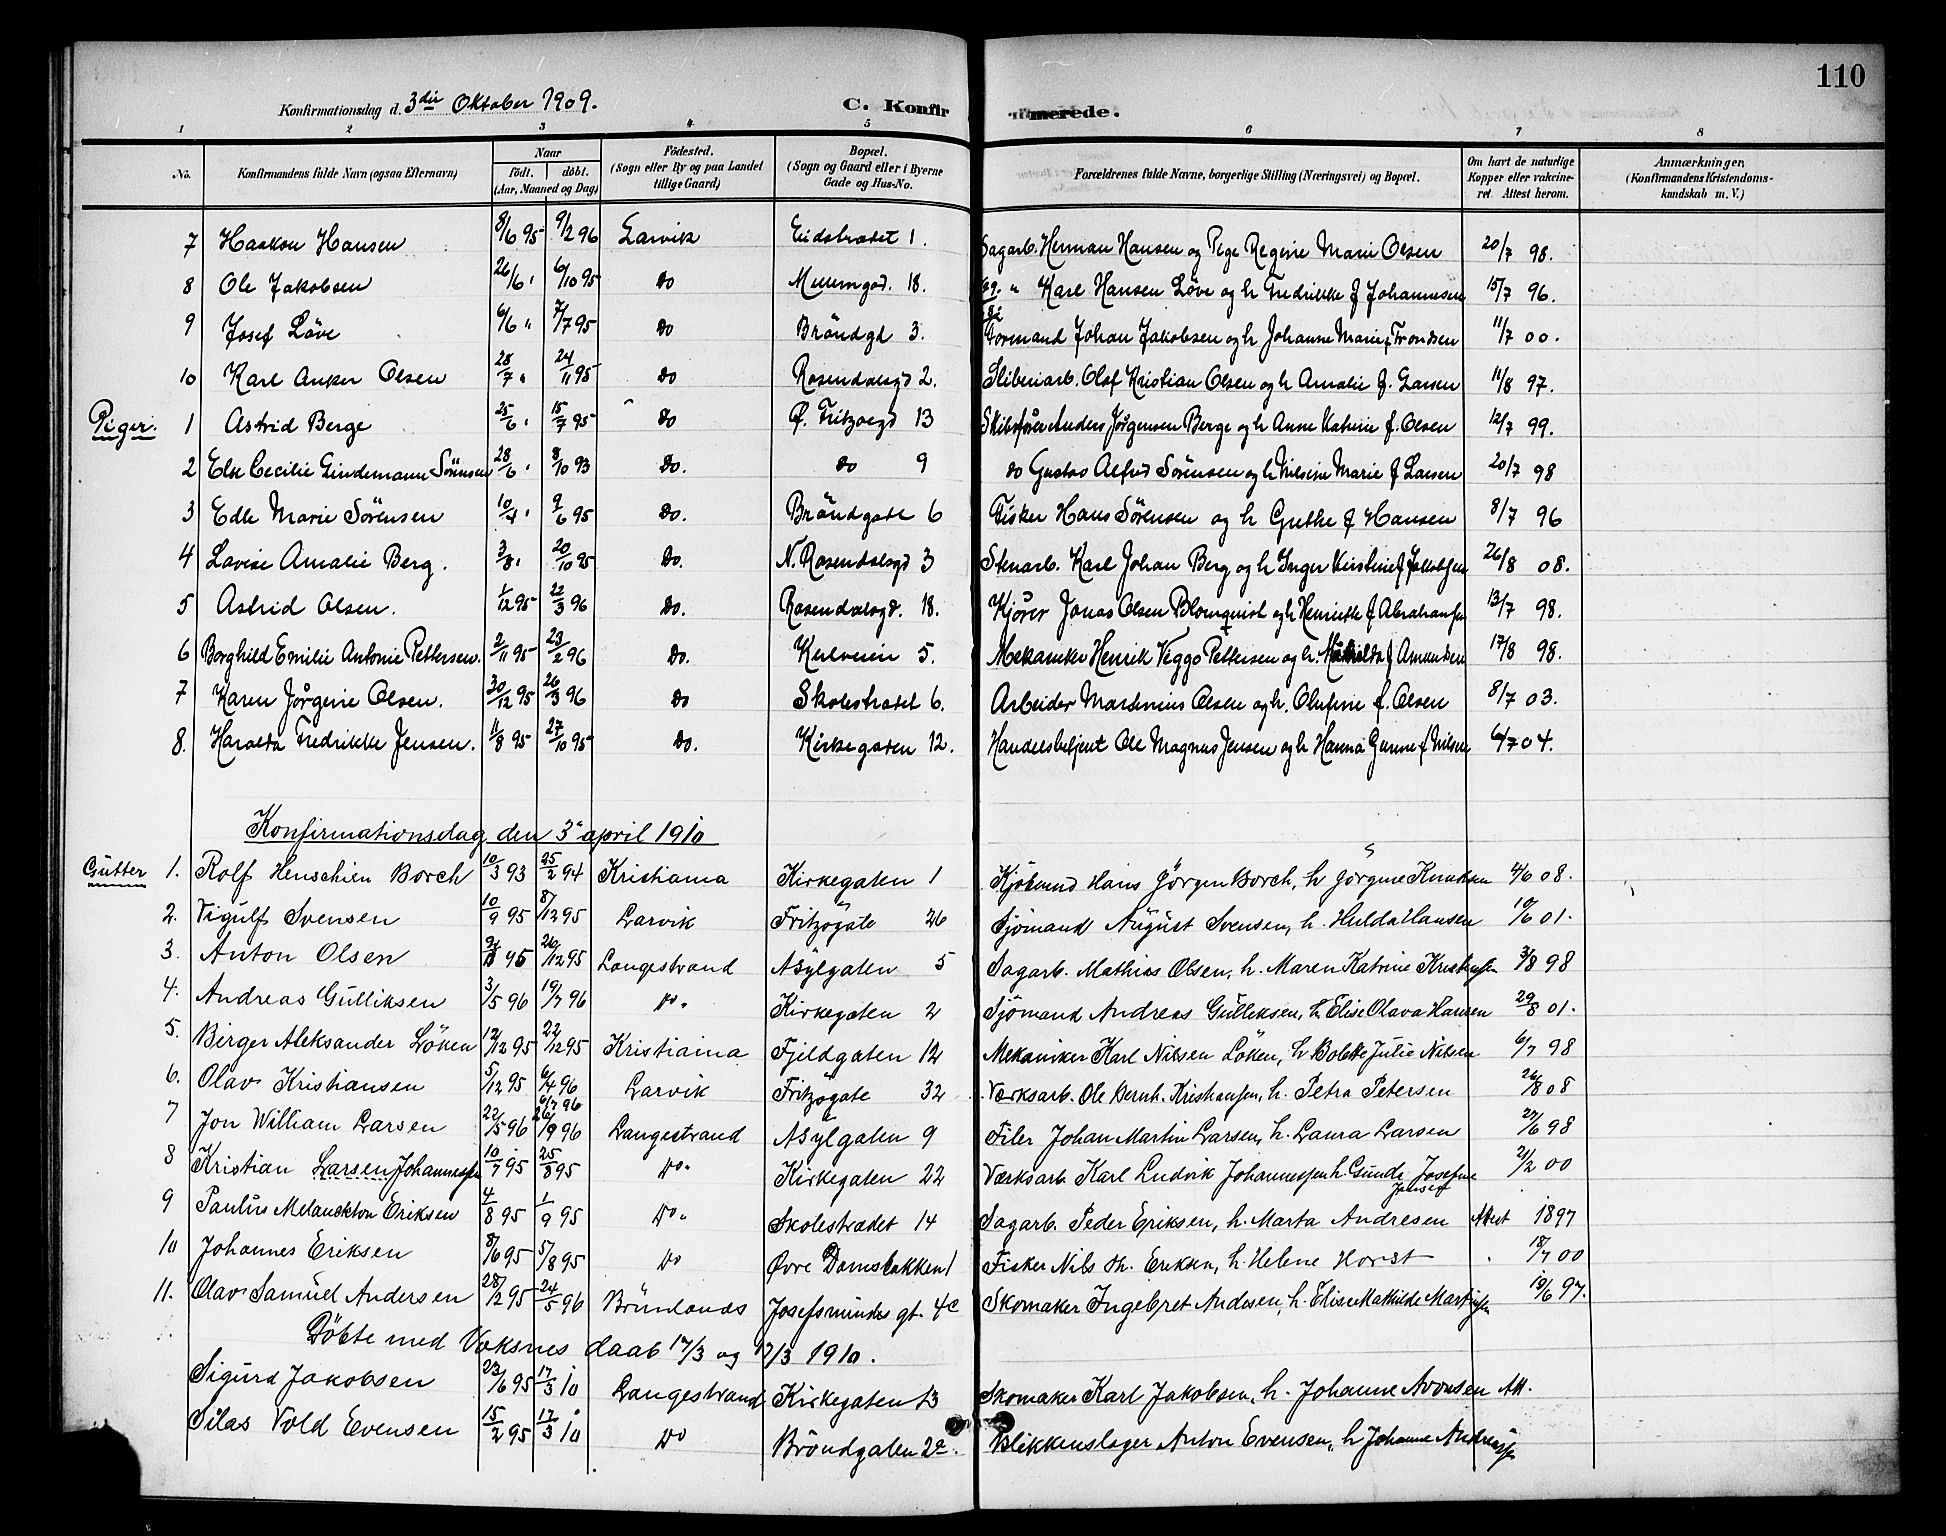 110
Konfirmationsdag d. 3die Oktober 1909. C. Konfirmerede.
1 2 3 4 5 6 7 8
No. Konfirmandens fulde Navn (ogsaa Efternavn) Naar født. døbt. (Aar, Maaned og Dag) Fødested. (Sogn eller By og paa Landet tillige Gaard) Bopæl. (Sogn og Gaard eller i Byerne Gade og Hus-No. Forældrenes fulde Navne, borgerlige Stilling (Næringsvei) og Bopæl. Om havt de naturlige Kopper eller vakcineret. Attest herom. Anmærkninger, (Konfirmandens Kristendomskundskab m. V.)
7 Haakon Hansen 8/6 95 9/2 96 Larvik Eidstrædet 1. Sagarb. Herman Hansen og Pige Regine Marie Olsen 20/7 98.
8 Ole Jakobsen 26/6 " 6/10 95 Do Møllergad. 18. " Karl Hansen Løve og h Fredrikke f Johannesen 15/7 96.
9 Josef Løve 6/6 " 7/7 95 Do Brøndgd 3. Formand Johan Jakobsen og h Johanne Marie f Trondsen 11/7 00.
10 Karl Anker Olsen 28/7 " 24/11 95 Do Rosendalsgd 2. Sliberiarb. Olaf Kristian Olsen og h Amalie f. Larsen 11/8 97.
Piger. 1 Astrid Berge 25/6 " 15/7 95 Do Ø. Fritzøegd 13 Skibsfører Anders Jørgensen Berge og h Anne Katrine f. Olsen 12/7 99.
2 Else Cecilie Lindemann Sørensen 28/6 " 8/10 93 Do. do 9 do Gustav Alfred Sørensen og h Nilsine Marie f Larsen 20/7 98
3 Edle Marie Sørensen 10/4 " 9/6 95 Do. Brøndgade 6 Fisker Hans Sørensen og h Grethe f Hansen 8/7 96
4 Lovise Amalie Berg. 3/8 " 20/10 95 Do. N. Rosendalsgd 3 Stenarb. Karl Johan Berg og h Inger Kirstine f Jakobsen 26/8 08.
5 Astrid Olsen. 1/12 95 22/3 96 Do. Rosendalsgd. 18. Kjører Jonas Olsen Blomquist og h Henriette f Abrahamsen 13/7 98.
6 Borghild Emilie Antonie Pettersen. 2/11 95 23/2 96 Do. Kulveien 5. Mekaniker Henrik Viggo Pettersen og h. Mathilda f Amundsen 17/8 98.
7 Karen Jørgine Olsen. 30/12 95 26/3 96 Do Skolestrædet 6. Arbeider Martinius Olsen og h. Olufine f. Olsen 8/7 03.
8. Haralda Fredrikke Jensen. 11/8 95 27/10 95 Do. Kirkegaten 12. Handelsbetjent Ole Magnus Jensen og h Hanna Gunine f Nilsen 6/7 04.
Konfirmationsdag den 3. april 1910
Gutter 1. Rolf Henschien Borch 10/3 93 25/2 94 Kristiania Kirkegaten 1 Kjøbmd Hans Jørgen Borch, h Jørgine Knudsen 4/6 08.
2. Vigulf Svensen 10/9 95 8/12 95 Larvik Fritzøgate 26 Sjømand August Svensen, h. Hulda Hansen 10/6 01.
3. Anton Olsen 95 26/12 95 Langestrand Asylgaten 5 Sagarb. Mathias Olsen, h. Maren Katrine Kristensen 3/8 98
4. Andreas Gulliksen 3/5 96 19/7 96 Do. Kirkegaten 2 Sjømand Andreas Gulliksen, h Elise Olava Hansen 29/8 01.
5. Birger Aleksander Løken 12/12 95 22/12 95 Kristiania Fjeldgaten 12 Mekaniker Karl Nilsen Løken, h Bolette Julie Nilsen 6/7 98
6. Olav Kristiansen 5/12 95 6/4 96 Larvik Fritzøgate 32 Værksarb. Ole Bernh. Kristiansen, h. Petra Petersen 26/8 08
6/7 96
7 Jon William Larsen 22/5 96 26/9 96 Langestrand Asylgaten 9 Filer Johan Martin Larsen, h. Laura Larsen 27/6 98
8 Kristian Larsen Johannessen 10/7 95 25/8 95 Do. Kirkegaten 22 Værksarb. Karl Ludvik Johannessen h Gunda Josefine Jansen 21/2 00
9 Paulus Melanckton Eriksen 4/8 95 1/9 95 Do. Skolestrædet 14 Sagarb. Peder Eriksen, h. Marta Andresen Attest 1897
10 Johannes Eriksen 8/6 95 5/8 95 Do Øvre Damsbakken 1 Fisker Nils Th. Eriksen, h. Helene Horst 18/7 00
11. Olav Samuel Andersen 28/12 95 24/5 96 Brunlanes Josefsmindes gt. 4c Skomaker Ingebret Andersen, h. Elise Mathilde Martinsen 13/6 97.
Døbte med Voksnes daab 17/3 og 12/3 1910.
Sigurd Jakobsen 23/6 95 17/3 10 Langestrand Kirkegaten 13 Skomaker Karl Jakobsen, h. Johanne Aronsen Att.
Silas Vold Evensen 15/2 95 17/3 10 Do Brøndgaten 2a. Blikkenslager Anton Evensen, h Johanne Andreassen